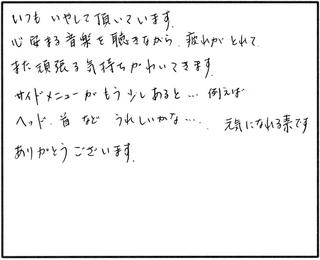 いつも いやして頂いています。
心安まる音楽を聴きながら、疲れがとれて、
また頑張る気持ちがわいてきます。
サイドメニューがもう少しあると… 例えば
ヘッド、首 など うれしいかな…。 元気になれる素です
ありがとうございます。